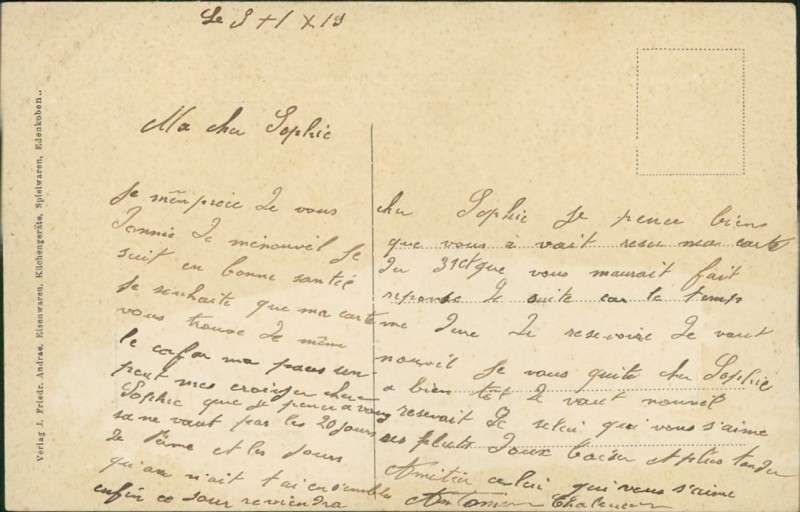 Le 3 + 1 x 19
Ma cher Sophie
Je m'enpreie de vous
Donnie De ménouvel Je
suit en bonne santié
Je souhaite que ma carte
vous trouve De même
le cafar ma passe un
peut mes croisier cher
Sophie que Je pence a vous
sa ne vaut pas les 20 jours
de Perme et les jours
qu'an n'ait tai ensembles
enfin ce Jour reviendra
cher Sophie Je pence biens
que vous à vait resu ma carte
du 31 et que vous maurait fait
reponse De suite car le temps
me Dure De resevoire De vaut
nouvel Je vous quite cher Sophie
a bien têt De vaut nouvel
resevait De selui qui vous s'aime
ses plus Doux baiser et plus tendre
Amitier celui qui vous s'aime
Antonin
Verlag J. Friedr. Andrae, Eisenwaren, Küchengeräte, Spielwaren, Edenkoben.